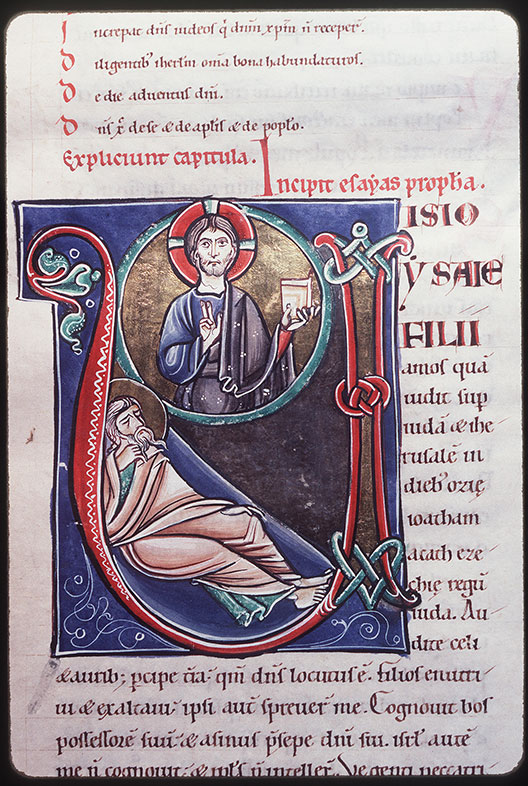 Increpat dn̄s iudeos q̄ dn̄m xp̄m n̄ receper̄.
Diligentib᾽ iherl̄m om̄a bona habundaturos.
De die aduentus dn̄i.
Dn̄s xp̄ de se & de ap̄lis & de pop̄lo.
Expliciunt capitula.
Incipit esayas propħa.
ISIO
ẏ SAIE
FILII
amos quā
uidit sup̄
iudā & ihe
rusalē in
dieb᾽ ozię
ioatham
acath eze
chię regū
iuda. Au
dite celi
& aurib; p̄cipe t̄ra. qm̄ dn̄s locutus ē. Filios enutri
ui & exaltaui᾽ ipsi aut̄ spreuer̄ me. Cognouit bos
possessorē suū᾽ & asinus p̄sepe dn̄i sui. isrl̄ autē
me n̄ cognouit᾽ & ipl̄s n̄ intellex̄. Ve genti peccatri